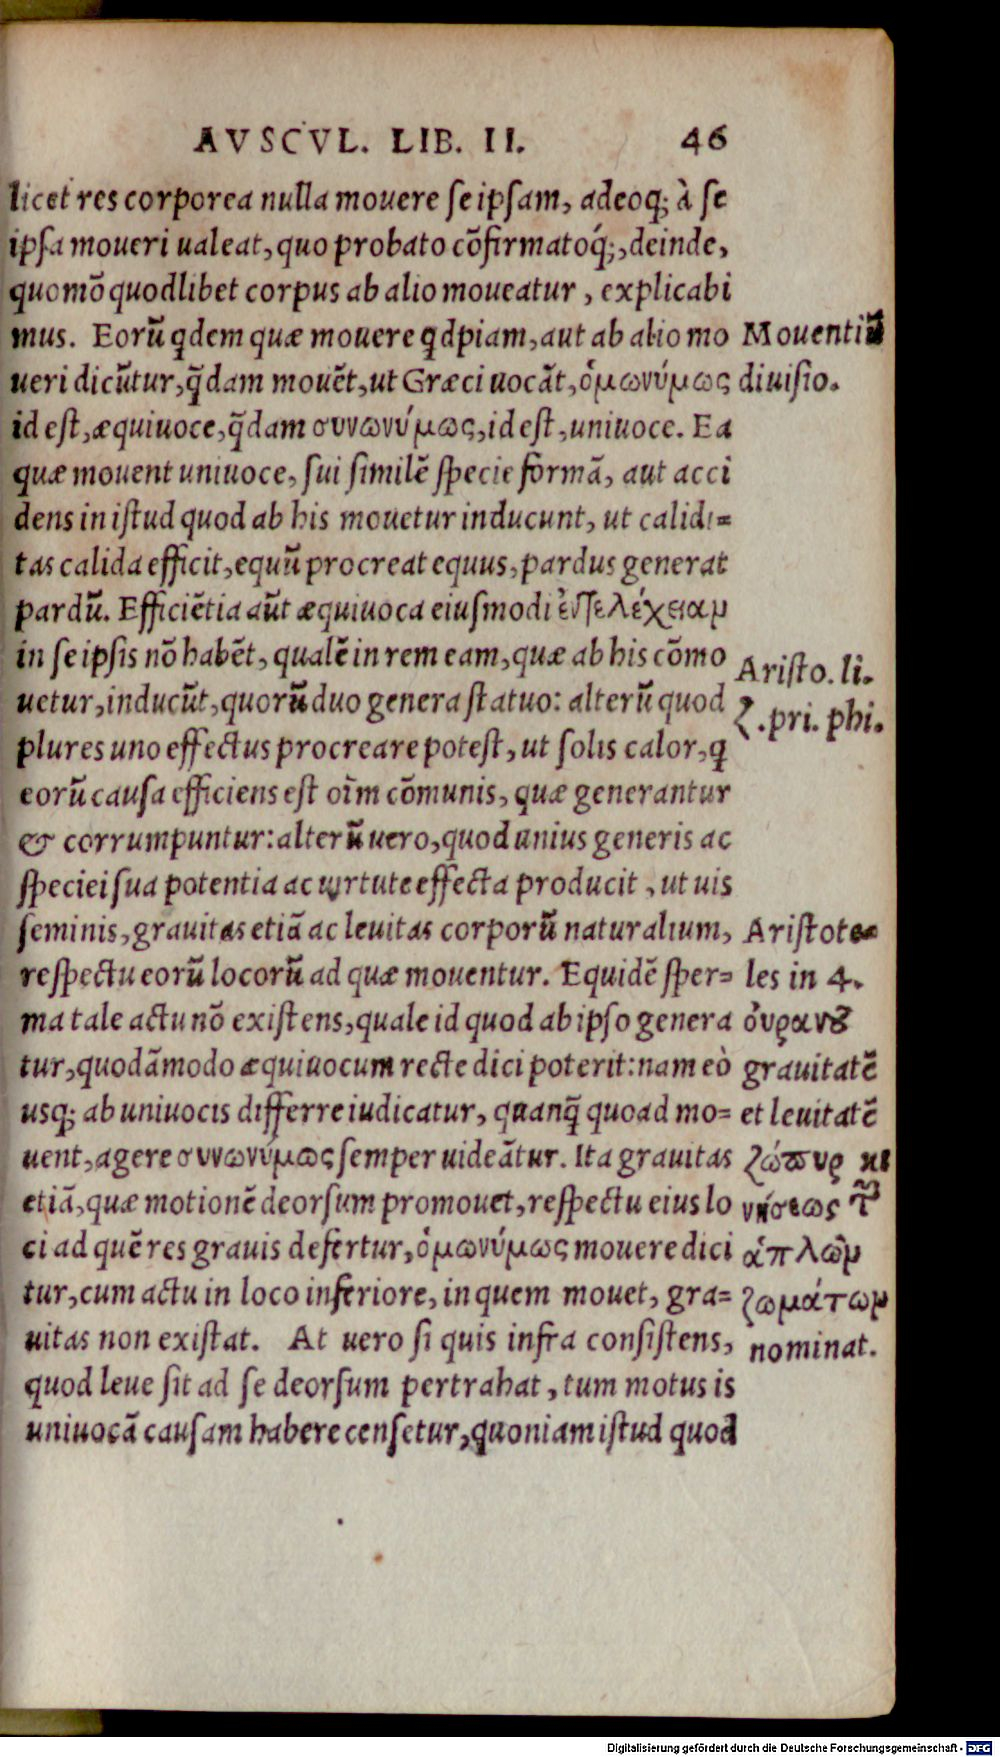 AVSCVL. LIB. II. 46
licet res corporea nulla mouere se ipsam, adeoq; à se
ipsa moueri ualeat, quo probato cõfirmatoq́;, deinde,
quomõ quodlibet corpus ab alio moueatur, explicabi
mus. Eorũ qdem quæ mouere qdpiam, aut ab alio mo
ueri dicũtur, q̃dam mouẽt, ut Græci uocãt, ὁμωνύμως
id est, æquiuoce, q̃dam συνωνύμως, id est, uniuoce. Ea
quæ mouent uniuoce, sui similẽ specie formã, aut acci
dens in istud quod ab his mouetur inducunt, ut calidi=
tas calida efficit, equũ procreat equus, pardus generat
pardũ. Efficiẽtia aũt æquiuoca eiusmodi ἐντελέχειαν
in se ipsis nõ habẽt, qualẽ in rem eam, quæ ab his cõmo
uetur, inducũt, quorũ duo genera statuo: alterũ quod
plures uno effectus procreare potest, ut solis calor, q
eorũ causa efficiens est oĩm cõmunis, quæ generantur
& corrumpuntur: alterũ uero, quod unius generis ac
speciei sua potentia ac uirtute effecta producit, ut uis
seminis, grauitas etiã ac leuitas corporũ naturalium,
respectu eorũ locorũ ad quæ mouentur. Equidẽ sper=
ma tale actu nõ existens, quale id quod ab ipso genera
tur, quodãmodo æquiuocum recte dici poterit: nam eò
usq; ab uniuocis differre iudicatur, quanq̃ quoad mo=
uent, agere συνωνύμως semper uideãtur. Ita grauitas
etiã, quæ motionẽ deorsum promouet, respectu eius lo
ci ad quẽ res grauis defertur, ὁμωνύμως mouere dici
tur, cum actu in loco inferiore, in quem mouet, gra=
uitas non existat. At uero si quis infra consistens,
quod leue sit ad se deorsum pertrahat, tum motus is
uniuocã causam habere censetur, quoniam istud quod
Mouentiũ
diuisio.
Aristo. li.
ζ. pri. phi.
Aristote=
les in 4.
ὀυρανȣ
grauitatẽ
et leuitatẽ
ζώπυρ κι
νήσεως τ̃
ἁπλῶν
ζωμάτων
nominat.
Digitalisierung gefördert durch die Deutsche Forschungsgemeinschaft - DFG